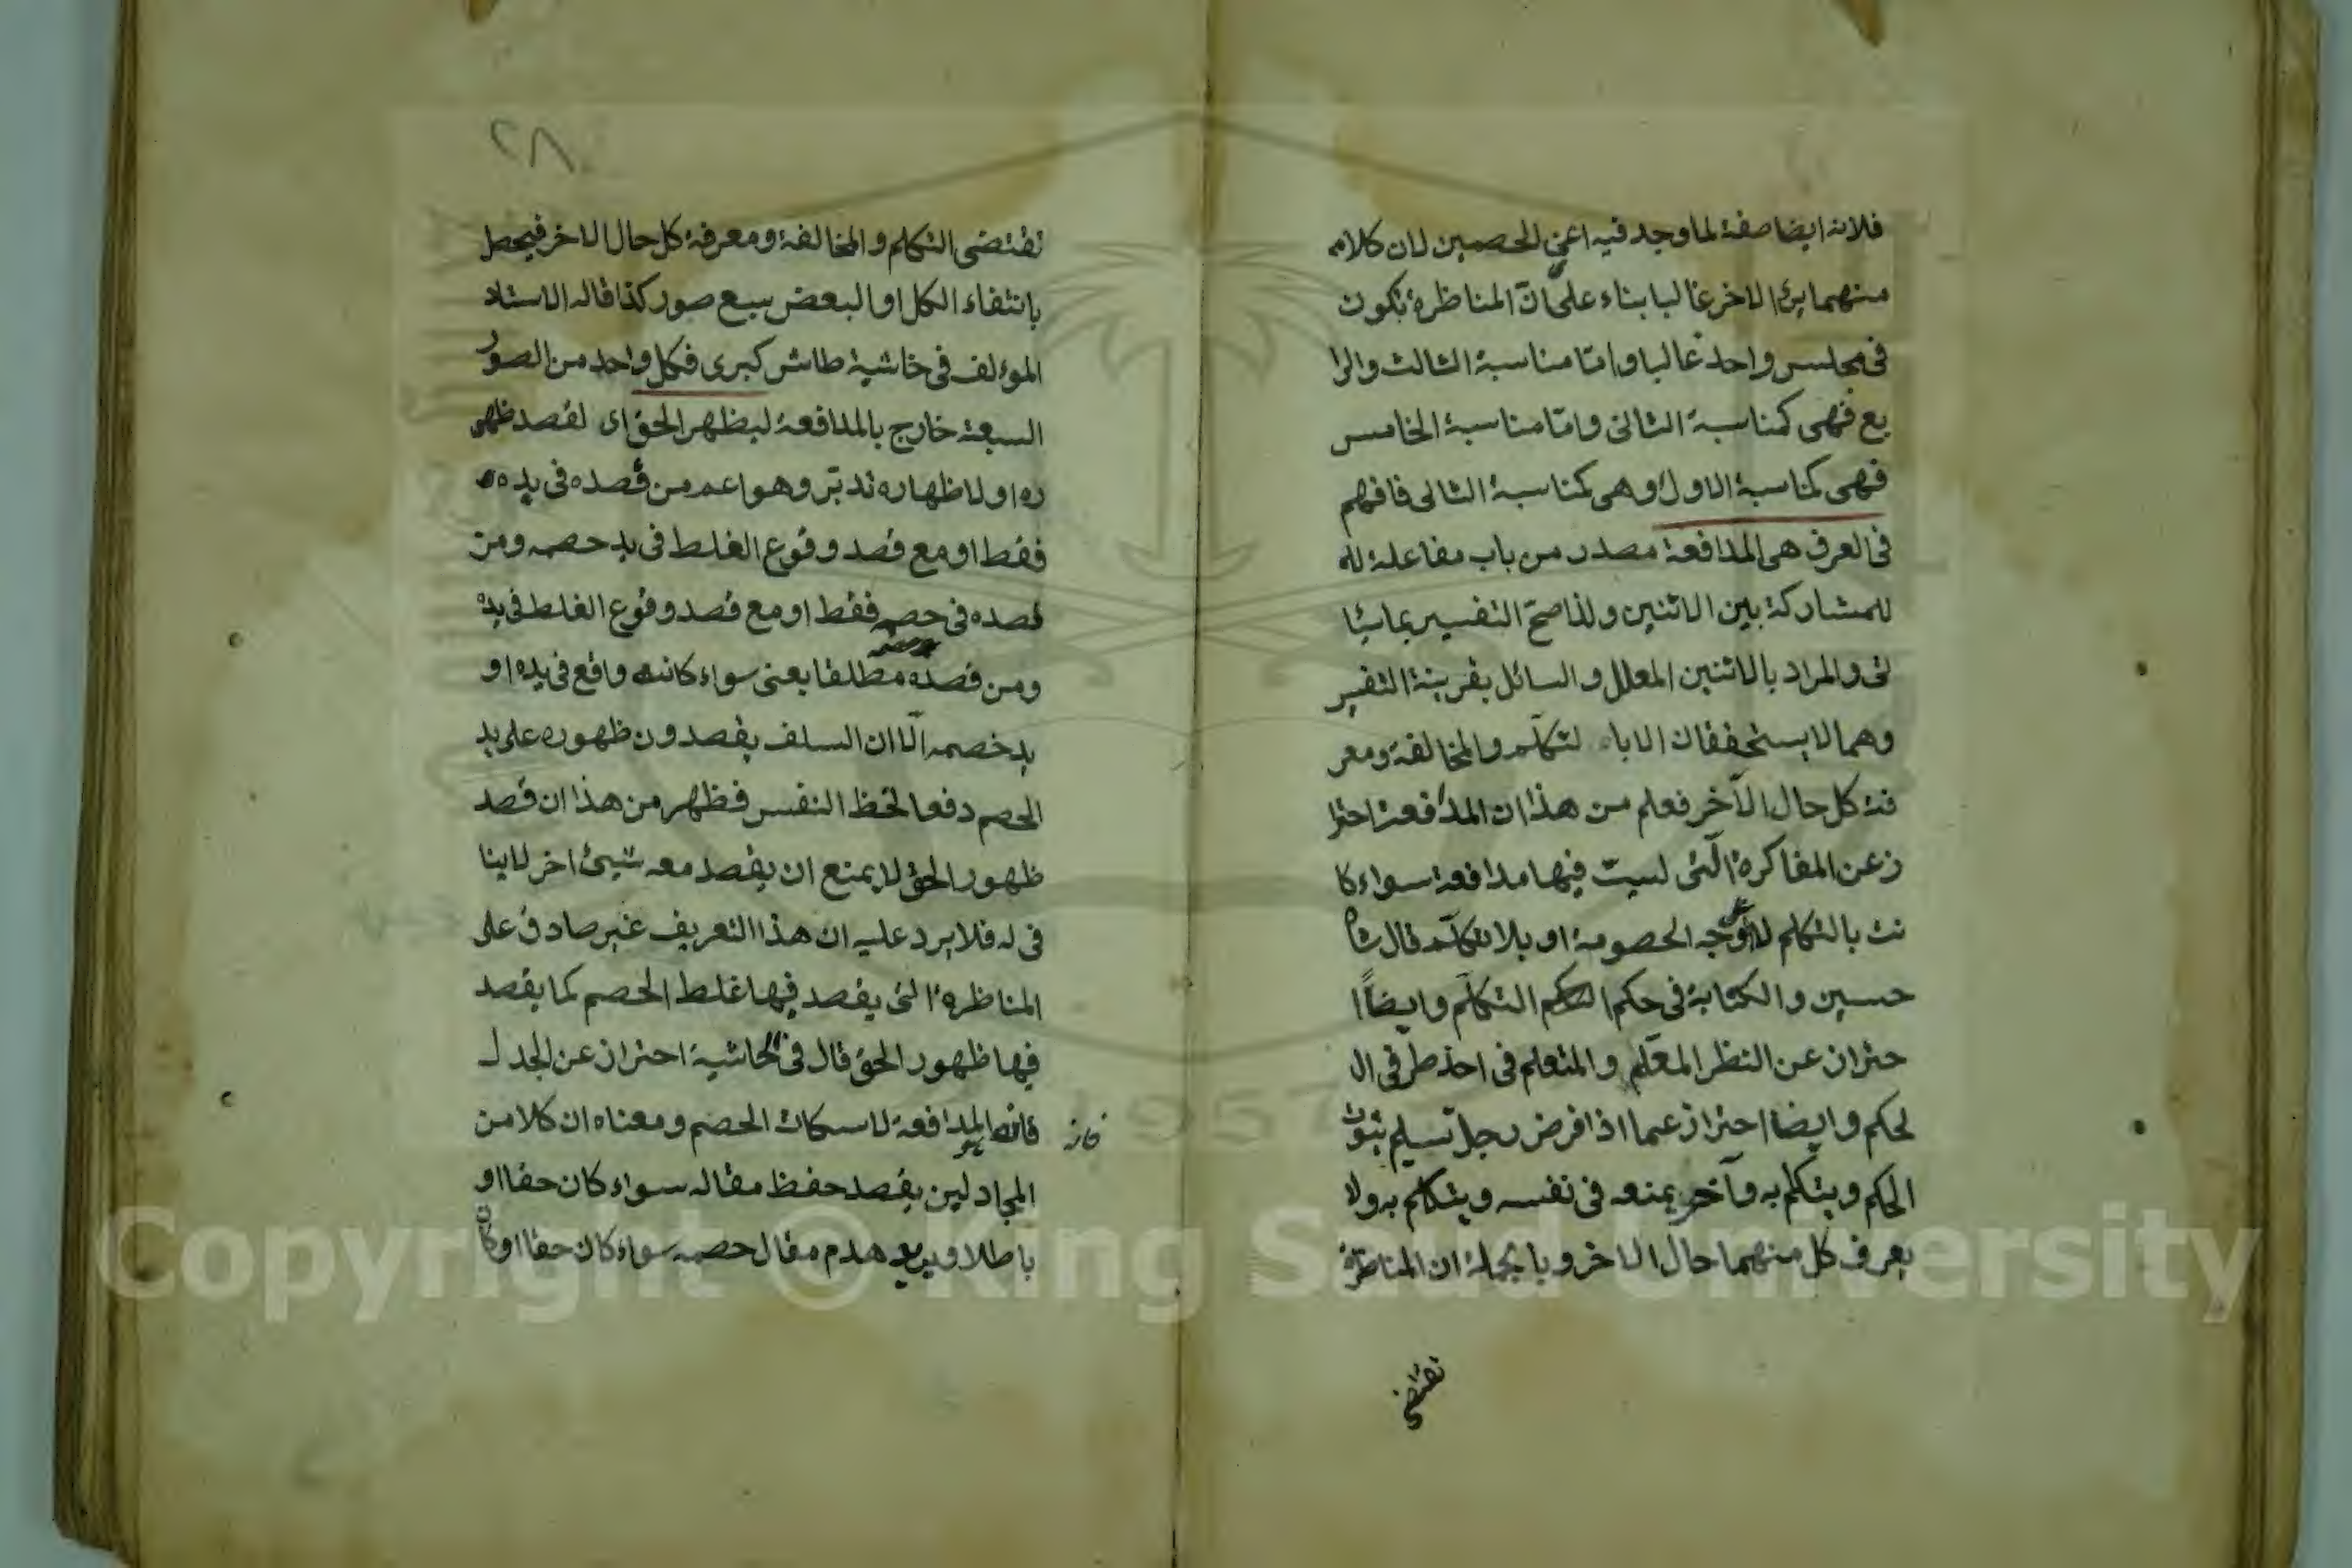 فلانه ايضا صفة لما وجد فيه اعني الخصمين لان كلام
منهما يرى الاخر غالبا بناء على انّ المناظرة تكون
في مجلس واحد غالبا وامّا مناسبة الثالث والرا
بع فهي كمناسبة الثاني وامّا مناسبة الخامس
فهي كمناسبة الاول وهي كمناسبة الثاني فافهم
في العرف هي المدافعة مصدر من باب مفاعلة لله
للمشاركة بين الاثنين ولذا صحّ التفسير بما سيا
تى والمراد بالاثنين المعلل والسائل بقرينة التفسير
وهما لا يستحققان الا با لتكلّم والمخالفة ومعر
فة كل حال الآخر فعلم من هذا ان المدافعة احترا
ز عن المفاكرة الّتى ليست فيها مدافعة سواء كا
نت بالتكلم لا على وجه الخصومة او بلا تكلّم قال شاه
حسين والكتابة في حكم التكلّم وايضاً ا
حتراز عن النظر المعلّم والمتعلم في احد طرفى ال
لحكم وايضا احتراز عما اذا فرض رجل تسليم ثبوت
الحكم ويتكلم به وآخر يمنعه في نفسه ويتكلم به ولا
يعرف كل منهما حال الاخر وبالجملة ان المناظرة
تقتضي
٢٨
تقتضى التكلم والمخالفة ومعرفة كل حال الاخر فيحصل
بانتفاء الكل او البعض سبع صور كذا قاله الاستاد
الموءلف في حاشية طاش كبرى فكل واحد من الصور
السبعة خارج بالمدافعة ليظهر الحق اى لقصد ظهو
ره او لاظهاره تدبّر وهو اعم من قصده في يده
فقط او مع قصد وقوع الغلط في يد خصمه ومن
قصده في خصمه فقط او مع قصد وقوع الغلط في يده
ومن قصده مطلقا يعني سواء كانه واقع في يده او
يد خصمه الّا ان السلف يقصدون ظهوره على يد
الخصم دفعا لحظ النفس فظهر من هذا ان قصد
ظهور الحق لا يمنع ان يقصد معه شيئ اخر لا ينا
فى له فلا يرد عليه ان هذا التعريف غير صادق على
المناظرة التى يقصد فيها غلط الخصم كما يقصد
فيها ظهور الحق قال في الحاشية احتراز عن الجدل
فانه المدافعة لاسكات الخصم ومعناه ان كلا من
المجادلين يقصد حفظ مقاله سواء كان حقا او
باطلا ويريد هدم مقال خصمه سواء كان حقا او كان